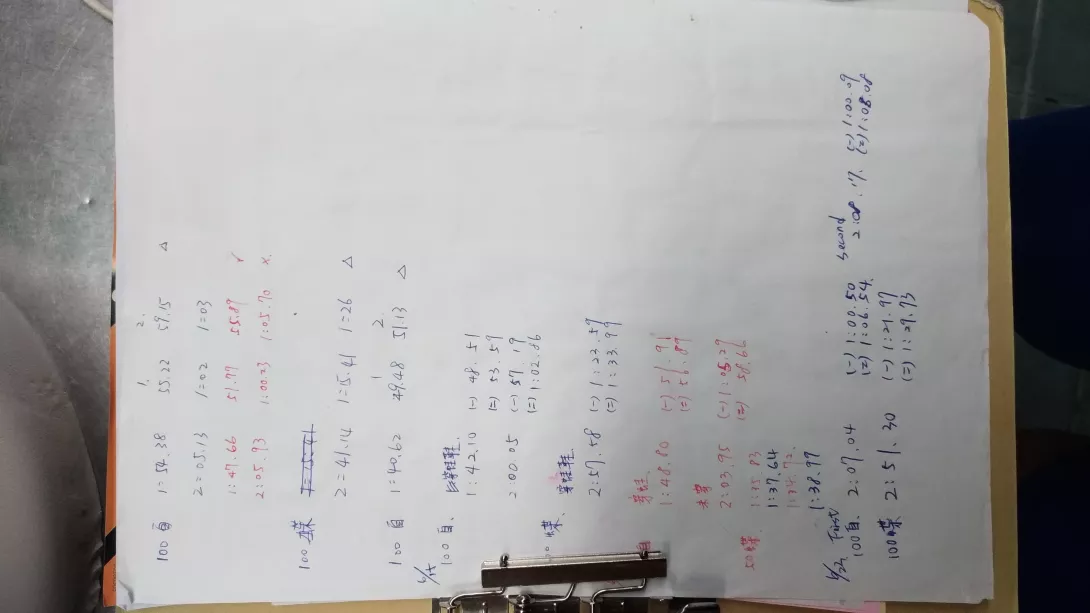 1. 2.
100 自 1=54.38 55.22 59.15 △
2=05.13 1=02 1=03
1:47.66 51.77 55.89 ✓
2:05.93 1:00.23 1:05.70 ×
100 蝶
2=41.14 1=15.41 1=26 △
1 2
100 自 1=40.62 49.48 51.13 △
100 自、
1:42.10 (一) 48.51
(二) 53.59
2:00.05 (一) 57.19
(二) 1:02.86
蝶、
2:57.58 (一) 1:23.59
(二) 1:33.99
自 穿蛙、
1:48.80 (一) 51.91
(二) 56.89
未穿
2:03.95 (一) 1:05.29
(二) 58.66
50蝶、 1:35.83
1:37.64
1:34.72
1:38.97
First second
100自、 2:07.04 (一) 1:00.50 2:08.17. (一) 1:00.09
(二) 1:06.54. (二) 1:08.08
100蝶 2:51.30 (一) 1:21.97
(二) 1:29.73